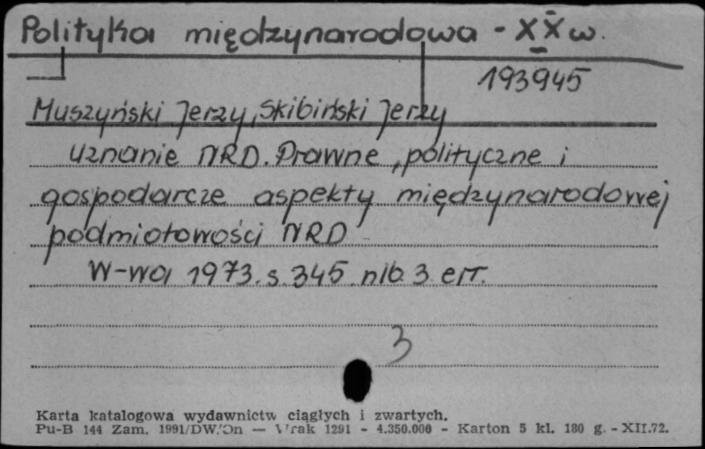 Polityka międzynarodowa - XX w.
193945
Muszyński Jerzy, Skibiński Jerzy
Uznanie NRD. Prawne, polityczne i
gospodarcze aspekty międzynarodowej
podmiotowości NRD
W-wa 1973. s. 345 nlb. 3 err.
3
Karta katalogowa wydawnictw ciągłych i zwartych.
Pu-B 144 Zam. 1991/DW/On — Wrak 1291 - 4.350.000 - Karton 5 kl. 180 g. - XII.72.